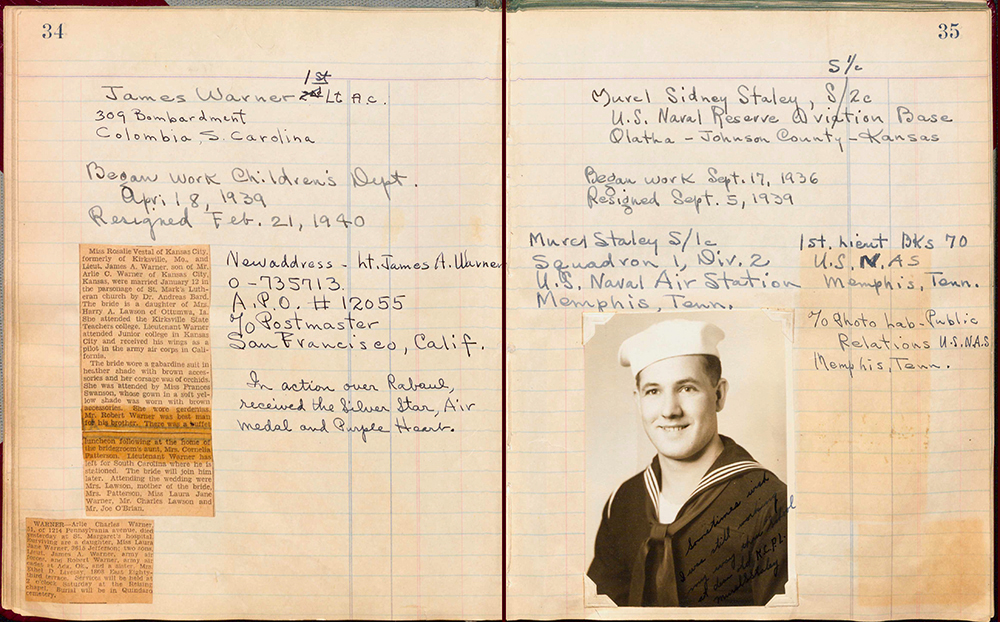 34
1st
James Warner 2nd Lt A.C.
309 Bombardment
Colombia, S. Carolina
Began work Children's Dept.
April 8, 1939
Resigned Feb. 21, 1940
Miss Rosalie Vestal of Kansas City,
formerly of Kirksville, Mo., and
Lieut. James A. Warner, son of Mr.
Arlie C. Warner of Kansas City,
Kansas, were married January 12 in
the parsonage of St. Mark's Luth-
eran church by Dr. Andreas Bard.
The bride is a daughter of Mrs.
Harry A. Lawson of Ottumwa, Ia.
She attended the Kirksville State
Teachers college. Lieutenant Warner
attended Junior college in Kansas
City and received his wings as a
pilot in the army air corps in Cali-
fornia.
The bride wore a gabardine suit in
heather shade with brown acces-
sories and her corsage was of orchids.
She was attended by Miss Frances
Swanson, whose gown in a soft yel-
low shade was worn with brown
accessories. She wore gardenias.
Mr. Robert Warner was best man
for his brother. There was a buffet
luncheon following at the home of
the bridegroom's aunt, Mrs. Cornelia
Patterson. Lieutenant Warner has
left for South Carolina where he is
stationed. The bride will join him
later. Attending the wedding were
Mrs. Lawson, mother of the bride,
Mrs. Patterson, Miss Laura Jane
Warner, Mr. Charles Lawson and
Mr. Joe O'Brian.
New address - Lt. James A. Warner
O-735713
A.P.O. # 12055
c/o Postmaster
San Francisco, Calif.
In action over Rabaul,
received the Silver Star, Air
medal and Purple Heart.
WARNER—Arlie Charles Warner,
51, of 1214 Pennsylvania avenue, died
yesterday at St. Margaret's hospital.
Surviving are a daughter, Miss Laura
Jane Warner, 3618 Jefferson; two sons,
Lieut. James A. Warner, army air
forces, and Robert Warner, army air
cadet at Ada, Ok., and a sister, Mrs.
Ethel D. Livesay, 1808 East Eighty-
third terrace. Services will be held at
o'clock Saturday at the
chapel. Burial will be in Quindaro
cemetery.
35
S 1/c
Murel Sidney Staley, S/2c
U.S. Naval Reserve Aviation Base
Olatha - Johnson County - Kansas
Began work Sept. 17, 1936
Resigned Sept. 5, 1939
Murel Staley S/1c
Squadron 1, Div. 2
U.S. Naval Air Station
Memphis, Tenn.
1st. Lieut Bks 70
U.S. N.AS
Memphis, Tenn.
c/o Photo Lab - Public
Relations U.S.N.A.S
Memphis, Tenn.
Sometimes wish
I was still
my way
at the old K.C.P.L.
Murel Staley